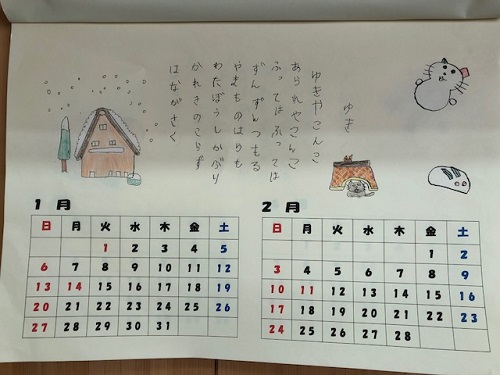 ゆき
ゆきやこんこ
あられやこんこ
ふってはふっては
ずんずんつもる
やまものはらも
わたぼうしかぶり
かれきのこらず
はながさく
1月
日 月 火 水 木 金 土
1 2 3 4 5
6 7 8 9 10 11 12
13 14 15 16 17 18 19
20 21 22 23 24 25 26
27 28 29 30 31
2月
日 月 火 水 木 金 土
1 2
3 4 5 6 7 8 9
10 11 12 13 14 15 16
17 18 19 20 21 22 23
24 25 26 27 28